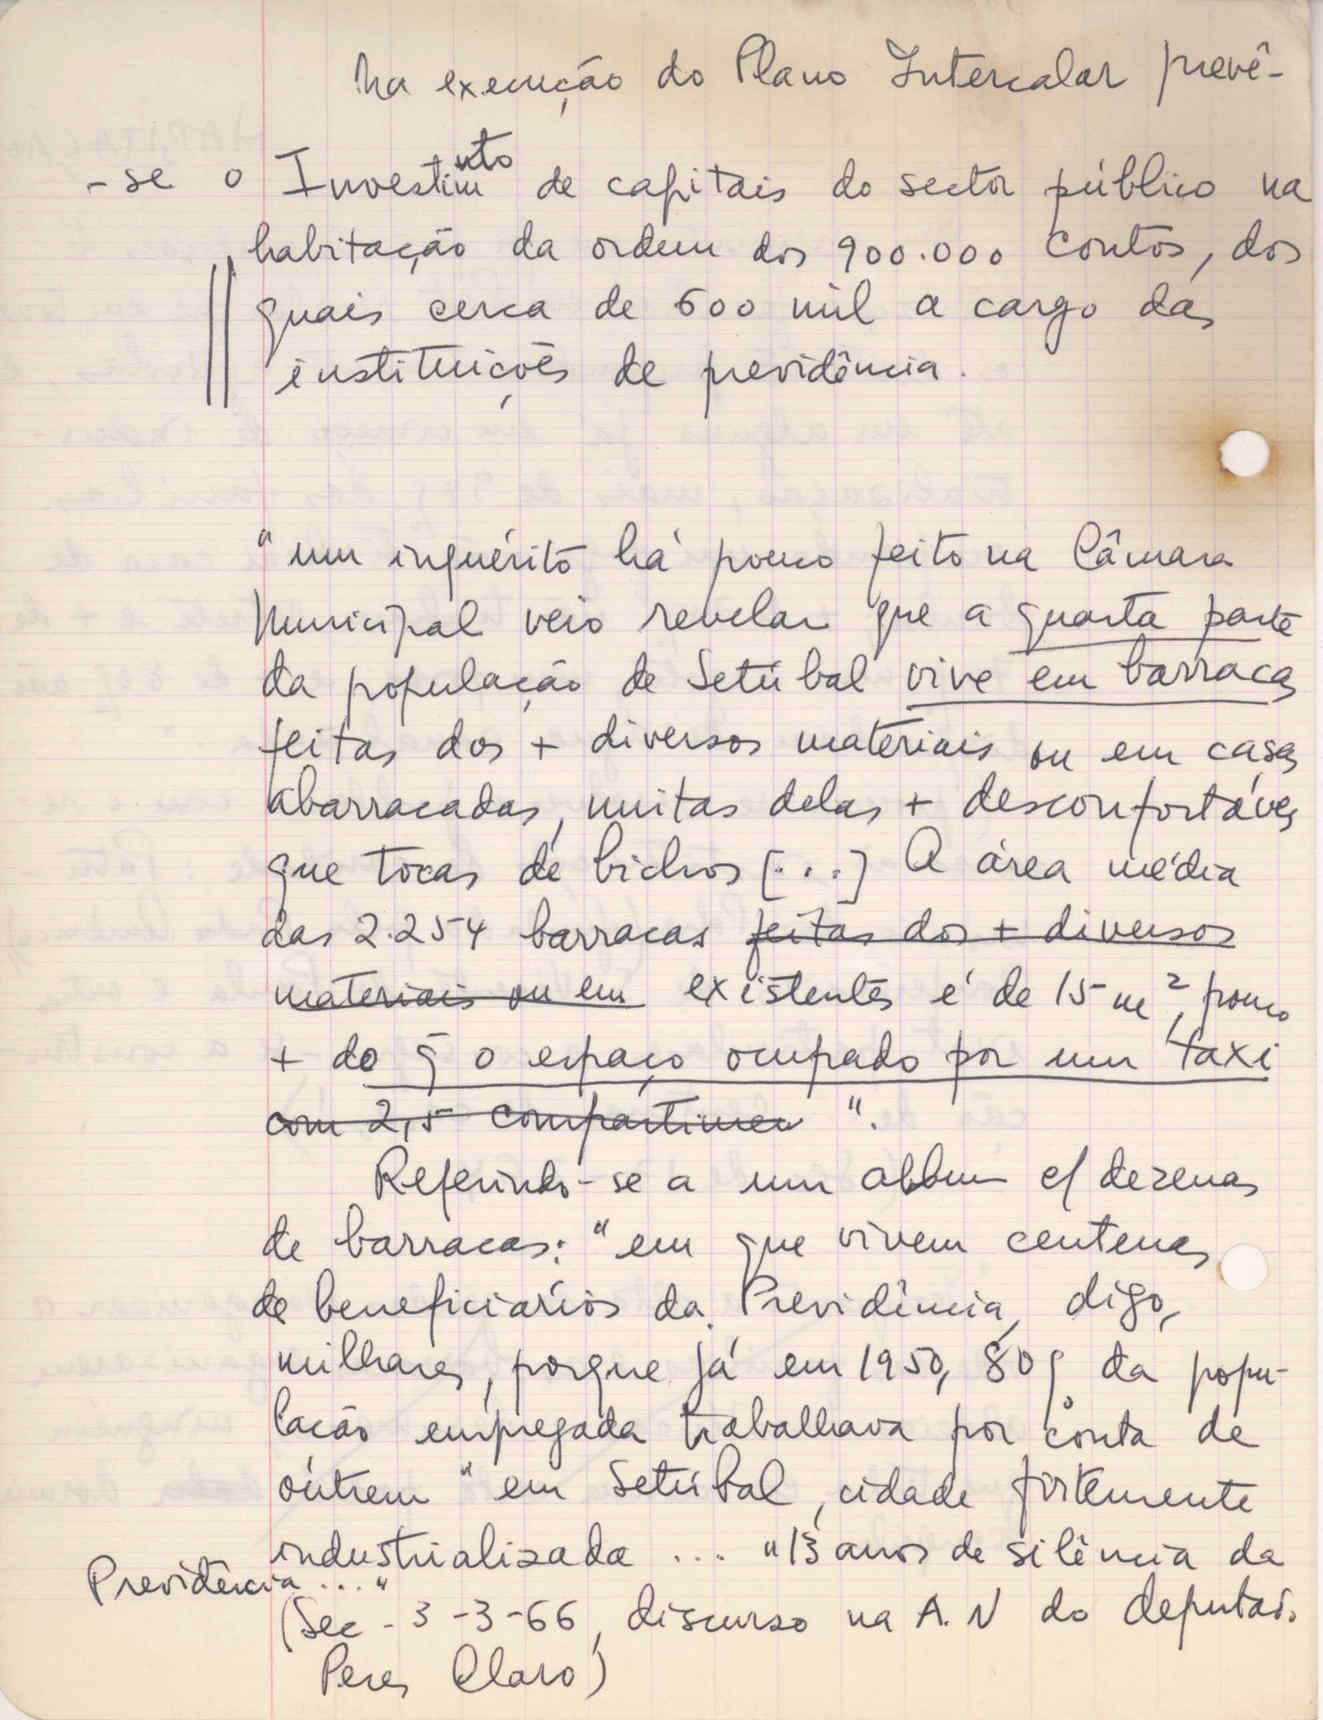 Na execução do Plano Intercalar prevê-
-se o Investimnto de capitais do sector público na
habitação da ordem dos 900.000 contos, dos
quais cerca de 600 mil a cargo das
instituições de previdência.
"um inquérito há pouco feito na Câmara
Municipal veio revelar que a quarta parte
da população de Setúbal vive em barracas
feitas dos + diversos materiais ou em casas
abarracadas, muitas delas + desconfortáveis
que tocas de bichos [...] A área média
das 2.254 barracas feitas dos + diversos
materiais ou em existentes é de 15 m², pouco
+ do q̃ o espaço ocupado por um taxi
com 2,5 compartimen".
Referindo-se a um album c/ dezenas
de barracas: "em que vivem centenas
de beneficiários da Previdência, digo,
milhares, porque já em 1950, 80% da popu-
lação empregada trabalhava por conta de
outrem" em Setúbal, cidade fortemente
industrializada ... "13 anos de silêncio da
Previdência ..."
(Sec - 3-3-66, discurso na A.N do deputado
Peres Claro)